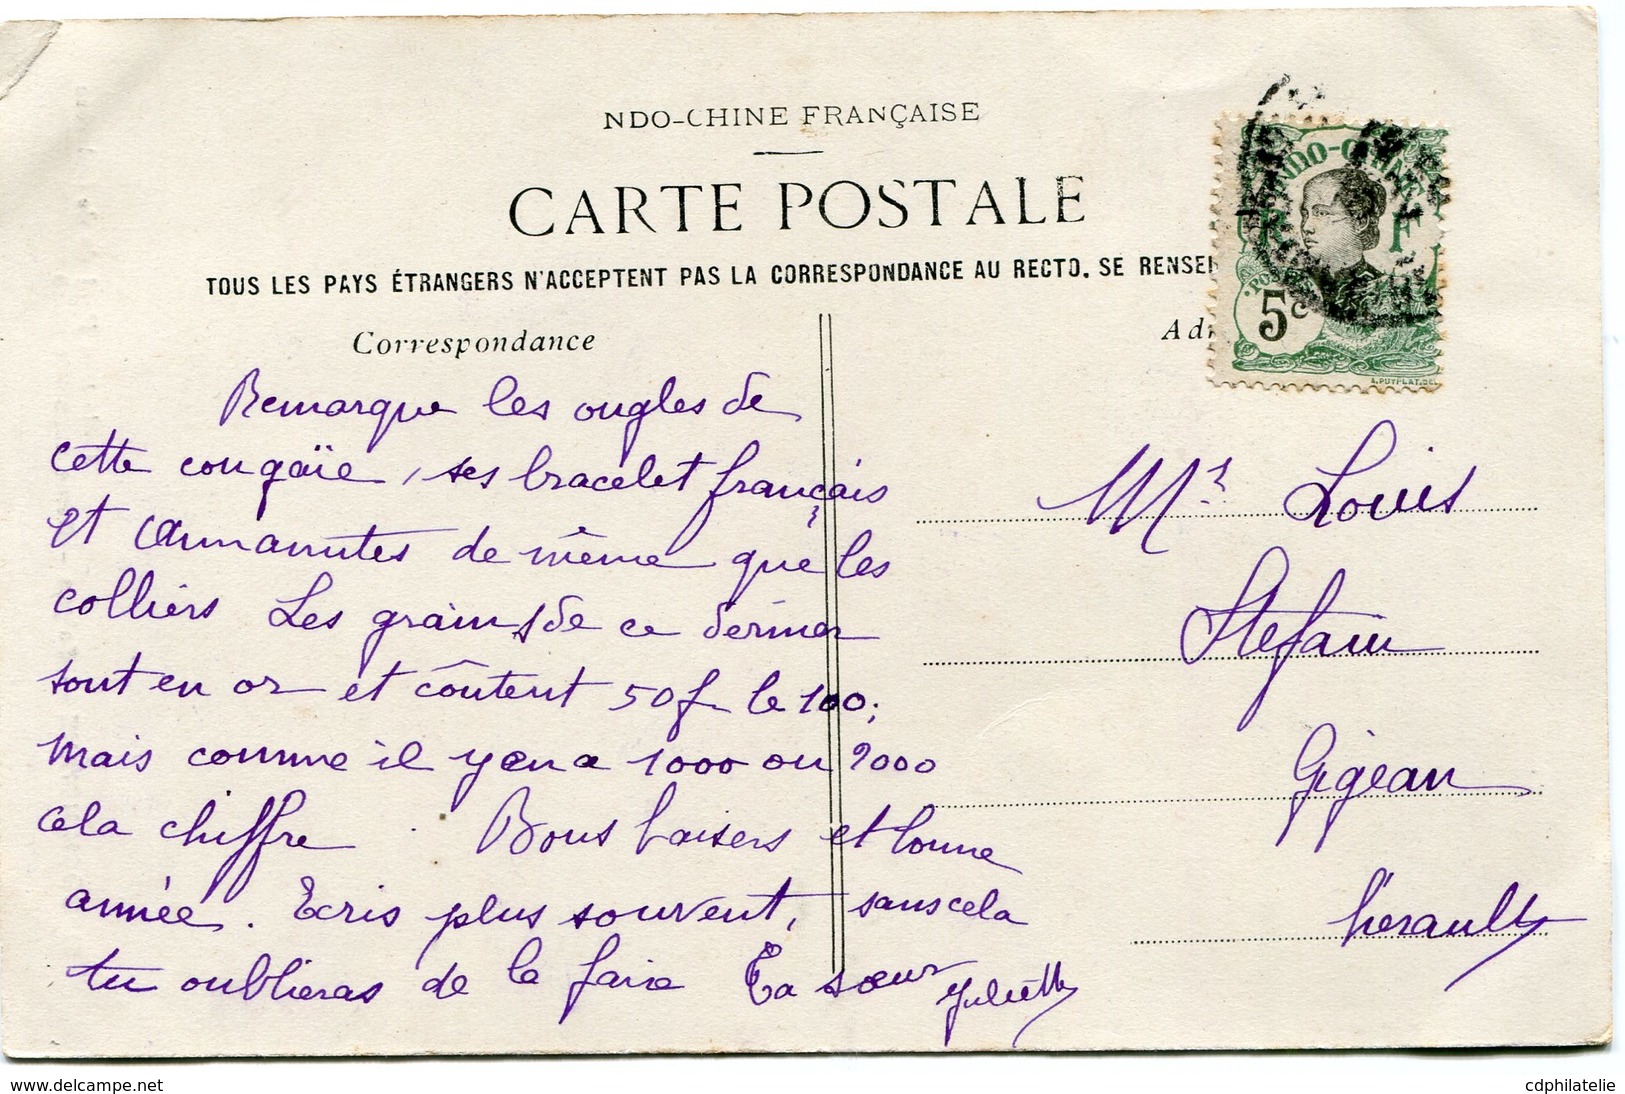 NDO-CHINE FRANÇAISE
CARTE POSTALE
TOUS LES PAYS ÉTRANGERS N'ACCEPTENT PAS LA CORRESPONDANCE AU RECTO. SE RENSEI
Correspondance
Ad
INDO-CHINE
R F
POSTES
5 c
A. PUYPLAT. DEL
Remarque les ongles de
cette congaïe, ses bracelet français
et annamites de même que les
colliers Les grains de ce dernier
sont en or et coûtent 50f le 100;
mais comme il y en a 1000 ou 2000
cela chiffre. Bons baisers et bonne
année. Ecris plus souvent, sans cela
tu oublieras de le faire Ta sœur Juliette
Mr Louis
Stefani
Gigean
hérault
www.delcampe.net
cdphilatelie